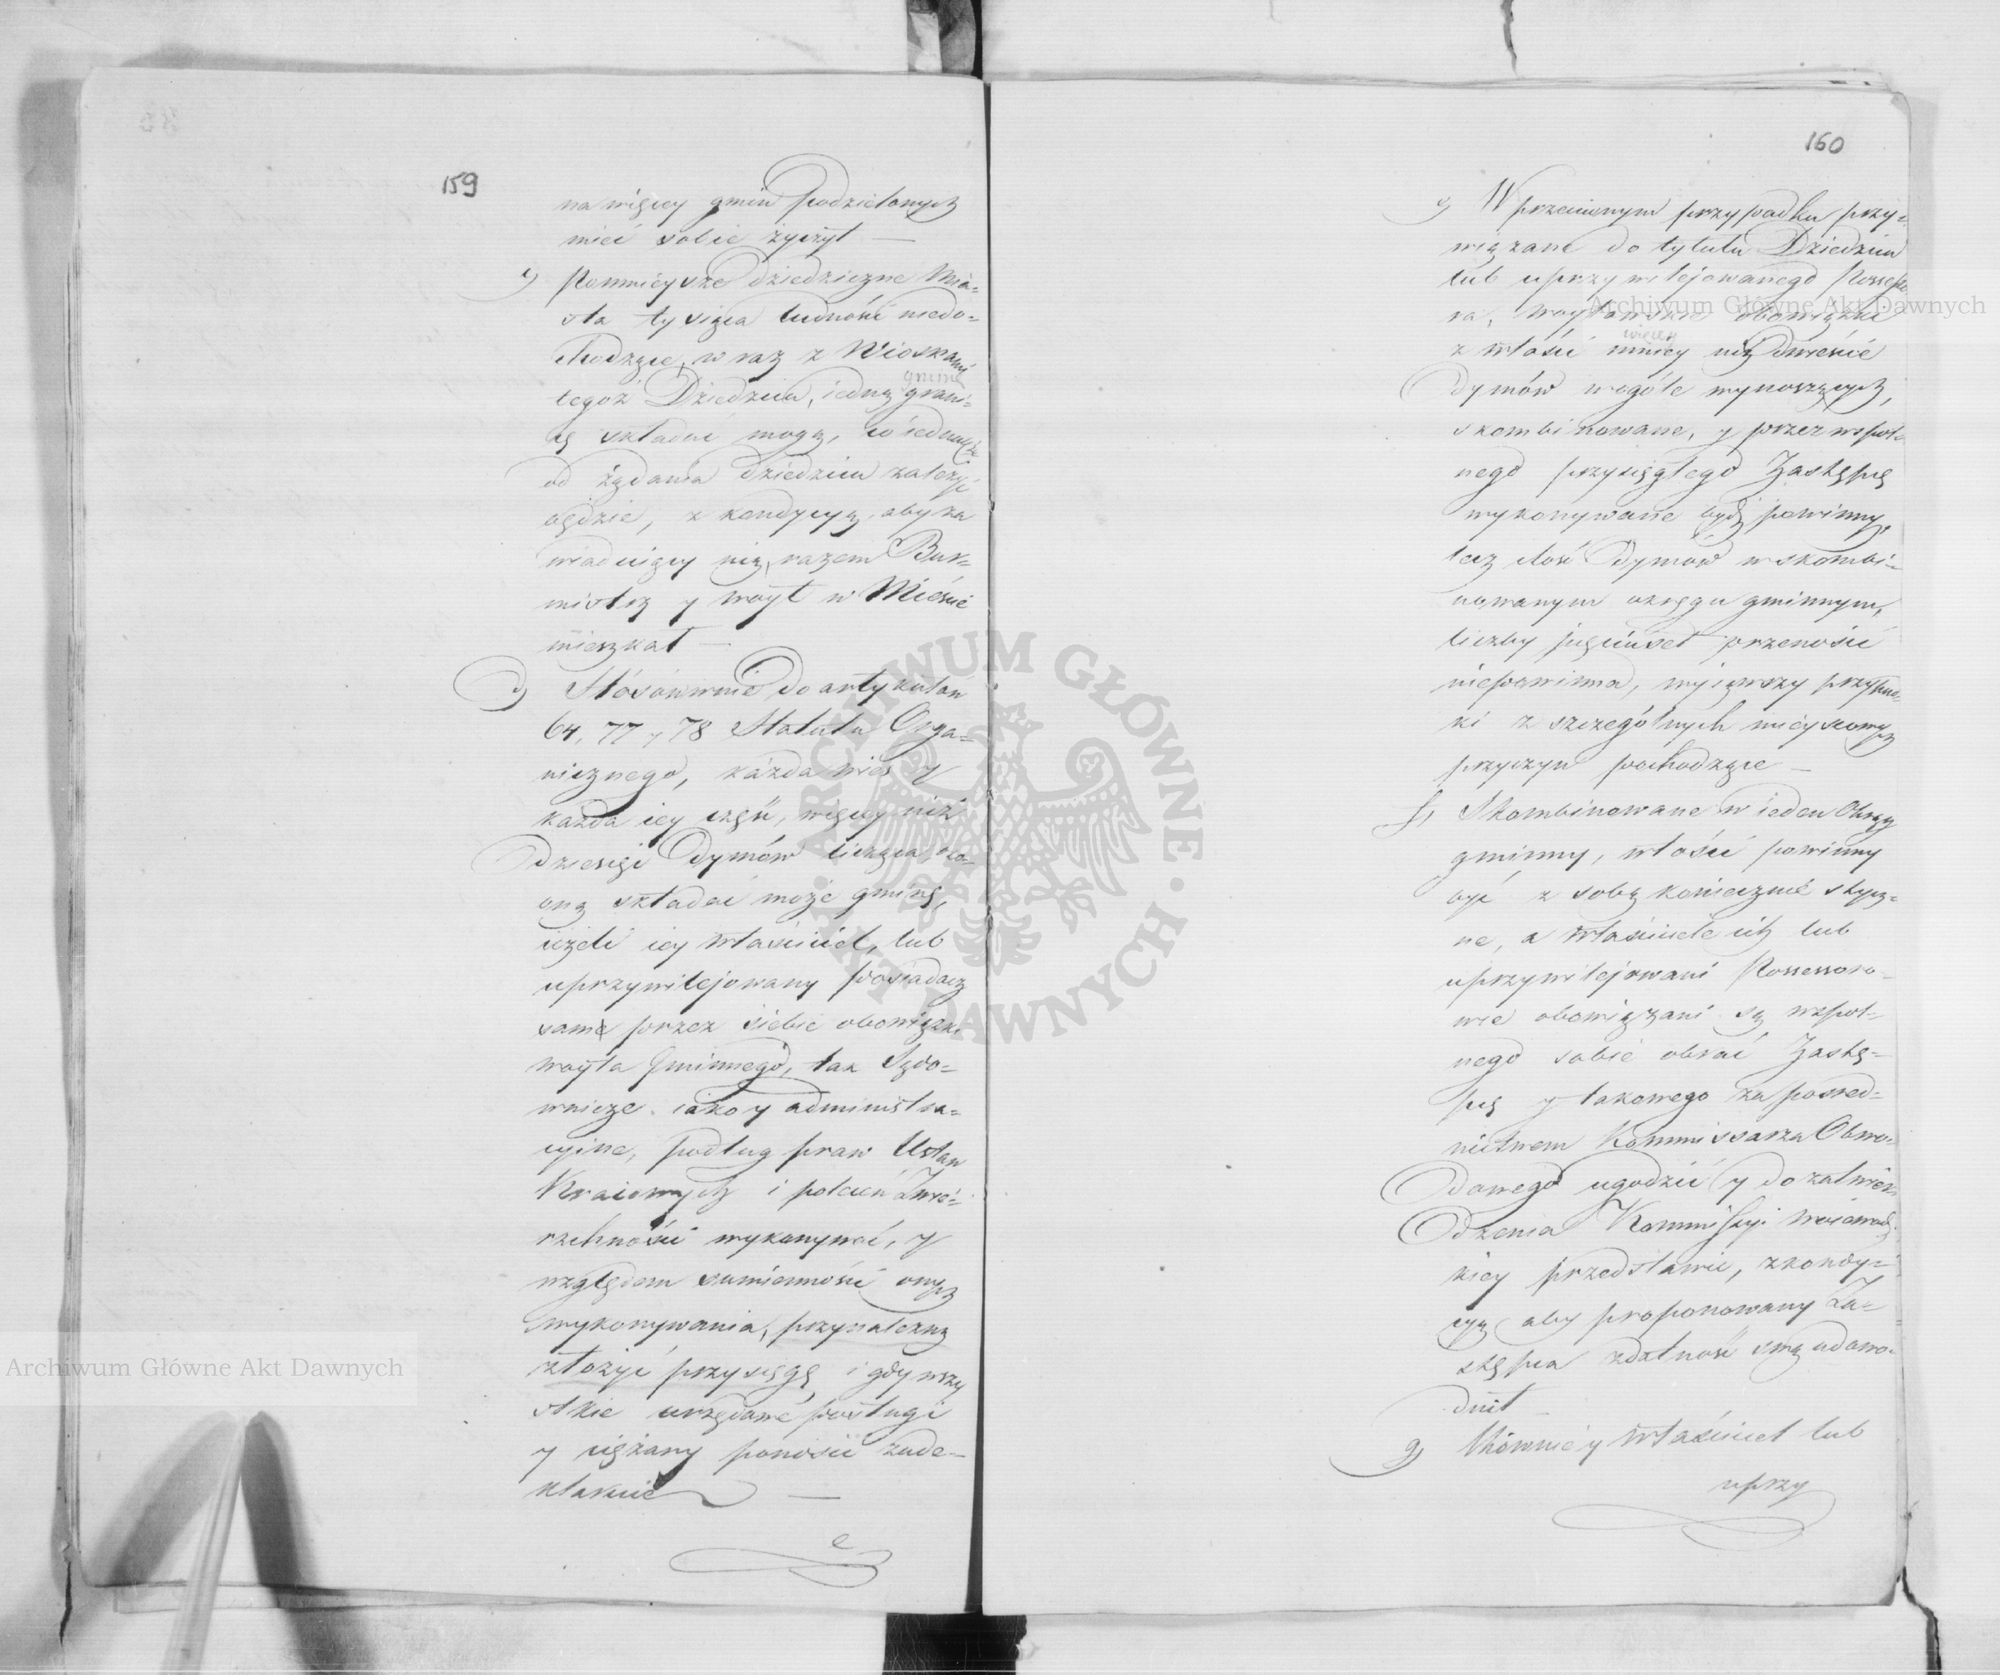 159
na więcey gmin podzielonych
mieć sobie życzył —
c) Pomnieysze dziedziczne Mia-
sta tysiąca ludności niedo-
chodzące, wraz z Wioskami
gminę
tegoż Dziedzica, iedną grani-
cę składać mogą, co iednakże
od żądania dziedzica zależyć
będzie, z kondycyą, aby za
wiaduiący nią razem Bur-
mistrz y woyt w Mieście
mieszkał —
d) Stósównie do artykułów
64, 77 y 78 Statutu Orga-
nicznego, każda wieś y
każda iey część, więcey niż
Dziesięć Dymów licząca, od-
składać może gminę,
ieżeli iey właściciel, lub
uprzywilejowany posiadacz
sam przez siebie obowiązki
woyta Gminnego, tak Sądo-
wnicze iako y administra-
cyine, podług praw Ustaw
Kraiowych i poleceń Zwie-
rzchności wykonywać, y
względem sumienności onych
wykonywania, przynależną
złożyć przysięgę, i gdy wszy
stkie urzędowe posługi
y ciężary ponosić zade-
klaruie —
e
160
e) W przeciwnym przypadku przy-
wiązane do tytułu Dziedzica
lub uprzywilejowanego Possesso
ra, woytowskie obowiązki
więcey
z włości mniey niż dwieście
Dymów wogóle wynoszących,
skombinowane, y przez wspól-
nego przysięgłego Zastępcę
wykonywane bydź powinny,
lecz ilość Dymów w skombi-
nowanym okręgu gminnym,
liczby pięciuset przenosić
niepowinna, wyiąwszy przypad-
ki z szczególnych mieyscowych
przyczyn pochodzące —
f) Skombinowane w ieden Okrąg
gminny, włości powinny
być z sobą koniecznie stycz-
ne, a właściciele ich lub
uprzywilejowani Possessoro-
wie obowiązani są wspól-
nego sobie obrać Zastę-
pcę y takowego za posred-
nictwem Kommissarza Obwo-
dowego ugodzić y do zatwier
dzenia Kommissyi Woiewodz
kiey przedstawić, z kondy-
cyą aby proponowany Za-
stępca zdatność swą udowo-
dnił —
g) Równie y właściciel lub
uprzy
Archiwum Główne Akt Dawnych
Archiwum Główne Akt Dawnych
· ARCHIWUM GŁÓWNE · AKT DAWNYCH